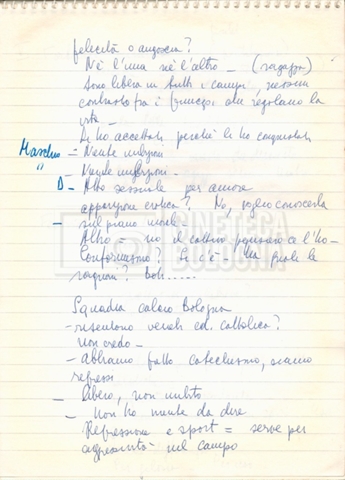 felicità o angoscia?
Nè l'una nè l'altro - (ragazza)
Sono libera in tutti i campi, nessun
contrasto fra i principi che regolano la
vita -
Li ho accettati perché li ho conquistati
Maschio = Niente inibizioni
" - Niente inibizioni -
D - Atto sessuale per amore
apparizione erotica? No, voglio conoscerla
- sul piano morale -
Altro = no, il cattivo ce l'ho
Conformismo? Sì c'è - Ma quali le
ragioni? Boh......
CINETECA
BOLOGNA
Squadra calcio Bologna
- risentono veneti ed. cattolica?
Non credo -
- Abbiamo fatto catechismo, siamo
repressi
- libero, non inibito
- Non ho niente da dire
Repressione e sport = serve per
aggressività nel campo